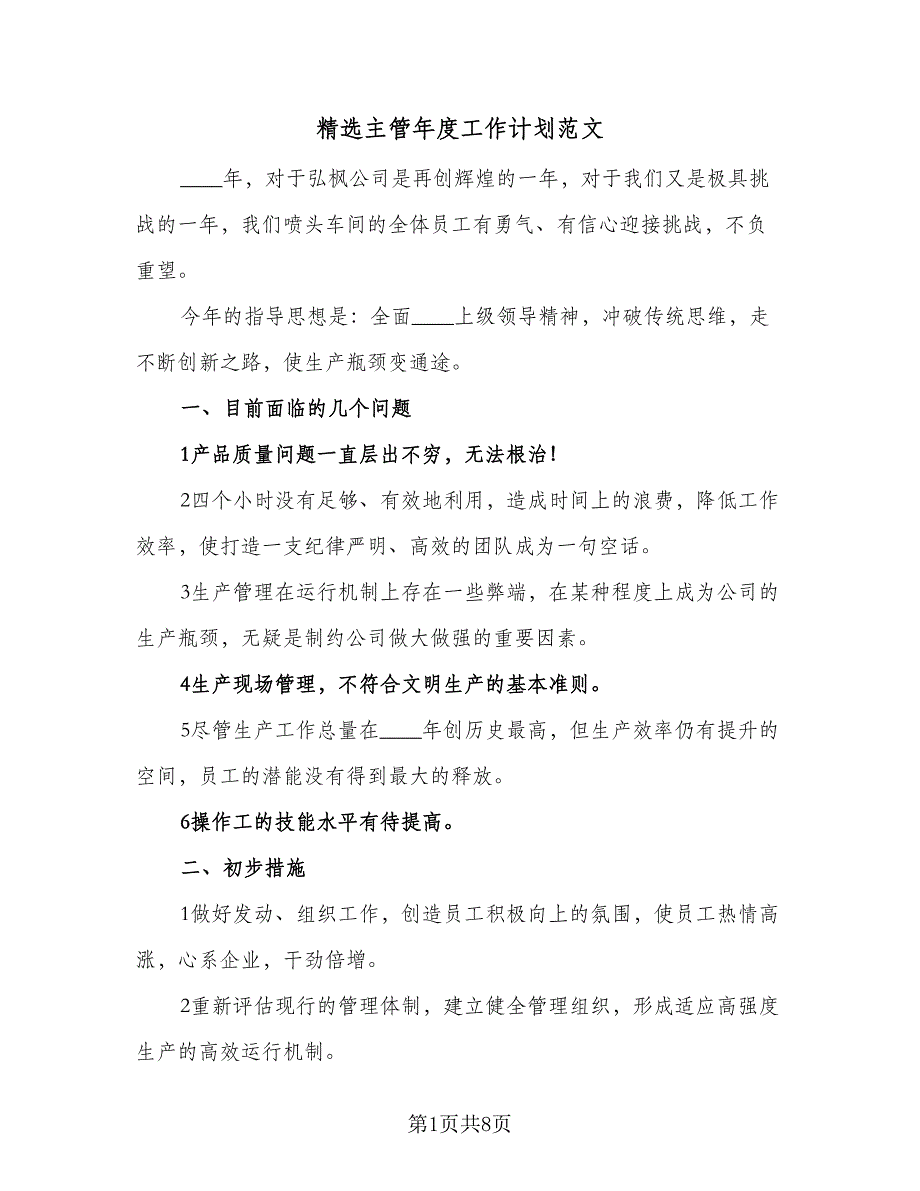 精选主管年度工作计划范文
____年，对于弘枫公司是再创辉煌的一年，对于我们又是极具挑
战的一年，我们喷头车间的全体员工有勇气、有信心迎接挑战，不负
重望。
今年的指导思想是：全面____上级领导精神，冲破传统思维，走
不断创新之路，使生产瓶颈变通途。
一、目前面临的几个问题
1产品质量问题一直层出不穷，无法根治！
2四个小时没有足够、有效地利用，造成时间上的浪费，降低工作
效率，使打造一支纪律严明、高效的团队成为一句空话。
3生产管理在运行机制上存在一些弊端，在某种程度上成为公司的
生产瓶颈，无疑是制约公司做大做强的重要因素。
4生产现场管理，不符合文明生产的基本准则。
5尽管生产工作总量在____年创历史最高，但生产效率仍有提升的
空间，员工的潜能没有得到最大的释放。
6操作工的技能水平有待提高。
二、初步措施
1做好发动、组织工作，创造员工积极向上的氛围，使员工热情高
涨，心系企业，干劲倍增。
2重新评估现行的管理体制，建立健全管理组织，形成适应高强度
生产的高效运行机制。
第1页共8页